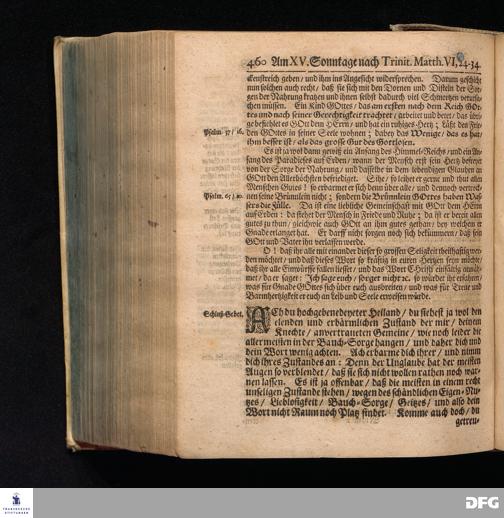 460 Am XV. Sonntage nach Trinit. Matth. VI, 24-34
ckenstreich geben/ und ihm ins Angesicht widersprechen. Darum geschicht
nun solchen auch recht/ daß sie sich mit den Dornen und Disteln der Sor-
gen der Nahrung kratzen und ihnen selbst dadurch viel Schmertzen verursa-
chen müssen. Ein Kind GOttes/ das am ersten nach dem Reich GOt-
tes und nach seiner Gerechtigkeit trachtet/ arbeitet und betet/ das übri-
ge befiehlet es GOtt dem HErrn/ und hat ein ruhiges Hertz; läßt des Frie-
Psalm. 37/16. den GOttes in seiner Seele wohnen; dabey das Wenige/ das es hat/
ihm besser ist/ als das grosse Gut des Gottlosen.
Es ist ja wol dann gewiß ein Anfang des Himmel-Reichs/ und ein An-
fang des Paradieses auf Erden/ wann der Mensch erst sein Hertz befreyet
von der Sorge der Nahrung/ und dasselbe in dem lebendigen Glauben an
GOtt den Allerhöchsten befriediget. Sihe/ so leihet er gerne und thut allen
Menschen Gutes! so erbarmet er sich denn über alle/ und dennoch vertrock-
Psalm. 65/10. nen seine Brünnlein nicht; sondern die Brünnlein GOttes haben Was-
sers die Fülle. Da ist eine liebliche Gemeinschaft mit GOtt dem HErrn
auf Erden: da stehet der Mensch in Friede und Ruhe; da ist er bereit allen
gutes zu thun/ gleichwie auch GOtt an ihm gutes gethan/ bey welchem er
Gnade erlanget hat. Er darff nicht sorgen noch sich bekümmern/ daß sein
GOtt und Vater ihn verlassen werde.
O! daß ihr alle mit einander dieser so grossen Seligkeit theilhafftig wer-
den möchtet/ und daß dieses Wort so kräftig in euren Hertzen seyn möchte/
daß ihr alle Einwürffe fallen liesset/ und das Wort Christi einfältig annäh-
met/ da er saget: Ich sage euch/ sorget nicht rc. so würdet ihr erfahren/
was für Gnade GOttes sich über euch ausbreiten/ und was für Treue und
Barmhertzigkeit er euch an Leib und Seele erweisen würde.
Schluß-Gebet. ACh du hochgebenedeyeter Heiland/ du siehest ja wol den
elenden und erbärmlichen Zustand der mir/ deinem
Knechte/ anvertraueten Gemeine/ wie noch leider die
allermeisten in der Bauch-Sorge hangen/ und daher dich und
dein Wort wenig achten. Ach erbarme dich ihrer/ und nimm
dich ihres Zustandes an: Denn der Unglaube hat der meisten
Augen so verblendet/ daß sie sich nicht wollen rathen noch war-
nen lassen. Es ist ja offenbar/ daß die meisten in einem recht
unseligen Zustande stehen/ wegen des schändlichen Eigen-Nu-
tzes/ Lieblosigkeit/ Bauch-Sorge/ Geitzes/ und also dein
Wort nicht Raum noch Platz findet. Komme auch doch/ du
getreu-
FRANCKESCHE
STIFTUNGEN
DFG